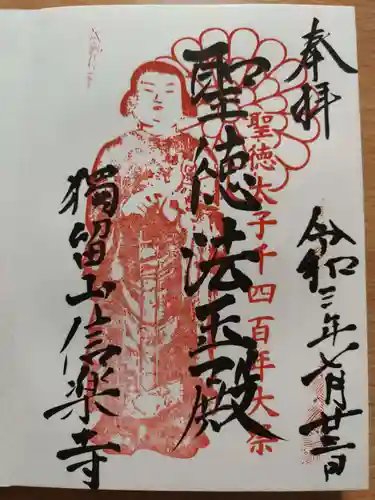 奉拝
令和三年七月廿三日
聖徳太子千四百年大祭
聖徳法王殿
獨留山信楽寺